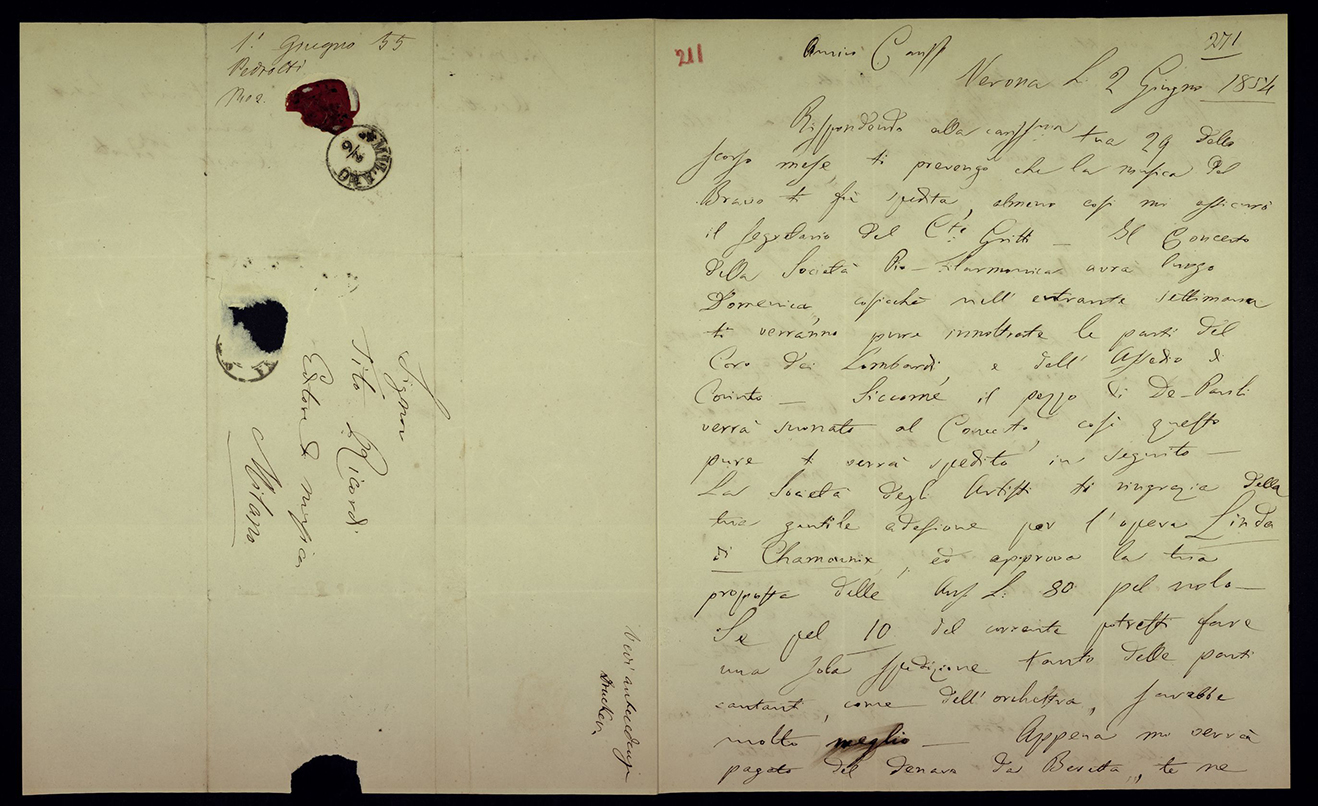 1.º Giugno 55
Pedrotti
MILANO
3/6
Signor
Tito Ricordi
Editore di musica
Milano
Vedi antecedenze
211
271
Amico Cariss
Verona li 2 Giugno 1854
Rispondendo alla carissima tua 29 dello
scorso mese, ti prevengo che la musica del
Bravo ti fù spedita, almeno così mi assicurò
il segretario del C.te Gritti — Il Concerto
della Società Pio-Filarmonica avrà luogo
Domenica, cosicchè nell'entrante settimana
ti verranno pure innoltrate le parti del
Coro dei Lombardi, e dell'Assedio di
Corinto — Siccome il pezzo di De-Paoli
verrà suonato al Concerto, così questo
pure ti verrà spedito in seguito —
La Società degli Artisti ti ringrazia della
tua gentile adesione per l'opera Linda
di Chamounix, ed approva la tua
proposta delle Aus L. 80 pel nolo —
Se pel 10 del corrente potresti fare
una sola spedizione tanto delle parti
cantanti, come dell'orchestra, sarebbe
molto meglio — Appena mi verrà
pagato del denaro da Beretta, te ne